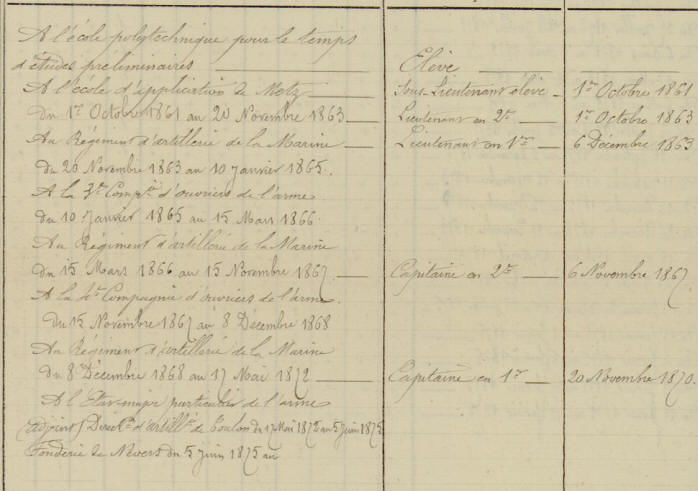 A l'école polytechnique pour le temps
d'études préliminaires Elève
A l'école d'application de Metz Sous-Lieutenant élève 1er Octobre 1861
Du 1er Octobre 1861 au 20 Novembre 1863 Lieutenant en 2e 1er Octobre 1863
Au Régiment d'artillerie de la Marine Lieutenant en 1er 6 Décembre 1863
du 20 Novembre 1863 au 10 janvier 1865.
A la Compie d'ouvriers de l'arme
du 10 Janvier 1865 au 15 Mars 1866
Au Régiment d'artillerie de la Marine
du 15 Mars 1866 au 15 Novembre 1867 Capitaine en 2e 6 Novembre 1867
A la Compagnie d'ouvriers de l'arme.
Du 15 Novembre 1867 au 8 Décembre 1868
Au Régiment d'artillerie de la Marine
du 8 Décembre 1868 au 17 Mai 1872 Capitaine en 1er 20 Novembre 1870.
A l'Etat-major particulier de l'arme
(adjoint) Direcon d'artillie de Toulon du 17 Mai 1872 au 5 juin 1875
Fonderie de Nevers du 5 juin 1875 au